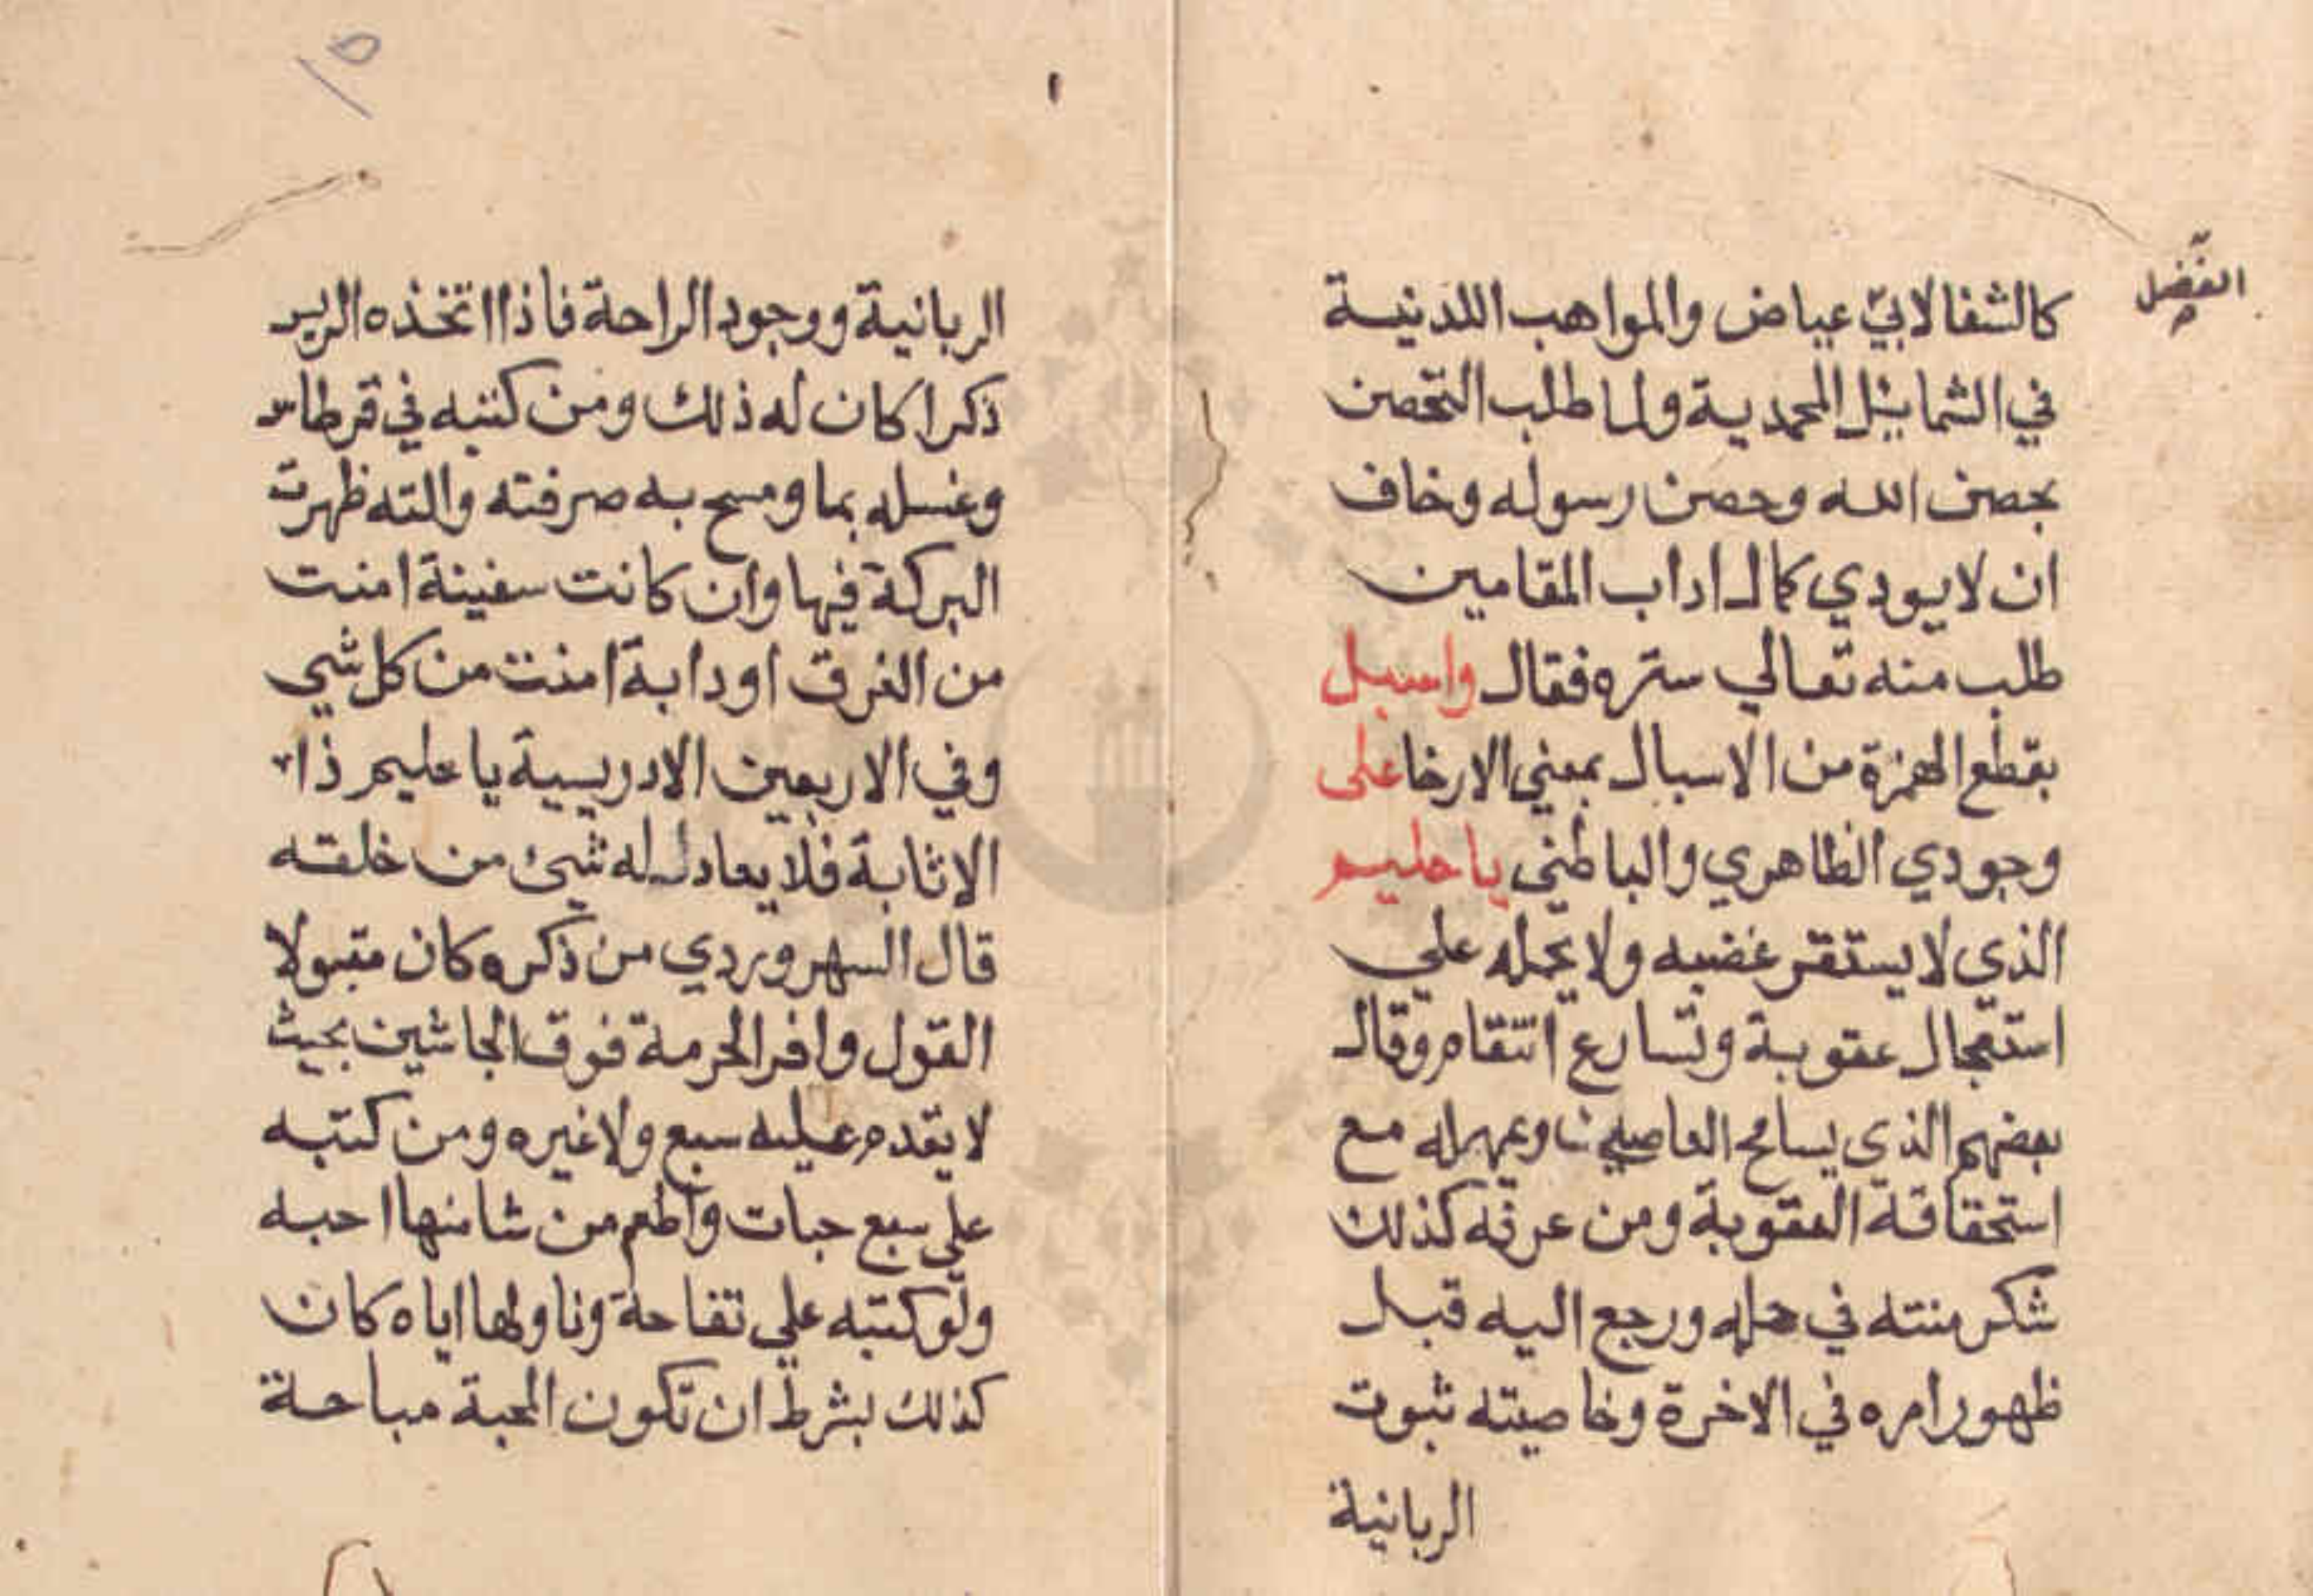 الفضل
كالشفا لابي عياض والمواهب اللدنية
في الشمايل المحمدية ولما طلب التحصن
بحصن الله وحصن رسوله وخاف
ان لا يودي كمال اداب المقامين
طلب منه تعالي ستره فقال واسبل
بقطع الهمزة من الاسبال بمعني الارخا على
وجودي الظاهري والباطني يا حليم
الذي لا يستفز غضبه ولا يحمله علي
استعجال عقوبة وتسارع انتقام وقال
بعضهم الذي يسامح العاصي ويمهله مع
استحقاقه العقوبة ومن عرفه كذلك
شكر منته في حلمه ورجع اليه قبل
ظهور امره في الاخرة وخاصيته ثبوت
الربانية
١٥
الربانية ووجود الراحة فاذا اتخذه
ذكرا كان له ذلك ومن كتبه في قرطاس
وغسله بما ومسح به صرفته والته ظهرت
البركة فيها وان كانت سفينة امنت
من الغرق او دابة امنت من كل شي
وفي الاربعين الادريسية يا حليم ذا
الاثابة فلا يعادله شيئ من خلقه
قال السهروردي من ذكره كان مقبولا
القول وافر الحرمة فوق الجاشين بحيث
لا يقدم عليه سبع ولا غيره ومن كتبه
علي سبع حبات واطعم من شا منها احبه
ولو كتبه علي تفاحة وناولها اياه كان
كذلك بشرط ان تكون المحبة مباحة